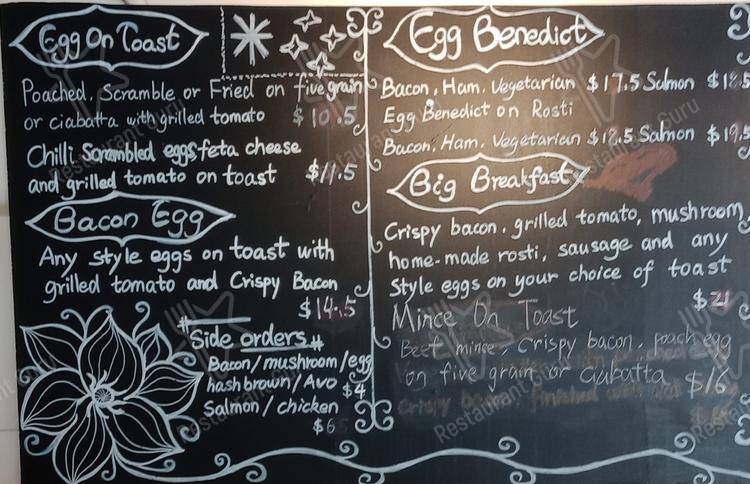 Egg On Toast
Poached, Scramble or Fried on five grain
or ciabatta with grilled tomato $10.5
Chilli Scrambled eggs feta cheese
and grilled tomato on toast $11.5
Bacon Egg
Any style eggs on toast with
grilled tomato and Crispy Bacon
$14.5
Side orders
Bacon/mushroom/egg
hash brown/Avo $4
Salmon/chicken
$6
Egg Benedict
Bacon, Ham, Vegetarian $17.5 Salmon $18.5
Egg Benedict on Rosti
Bacon, Ham, Vegetarian $18.5 Salmon $19.5
Big Breakfast
Crispy bacon, grilled tomato, mushroom,
home-made rosti, sausage and any
Style eggs on your choice of toast
$21
Mince On Toast
Beef mince, crispy bacon, poach egg
on five grain or ciabatta $16
Restaurant Guru